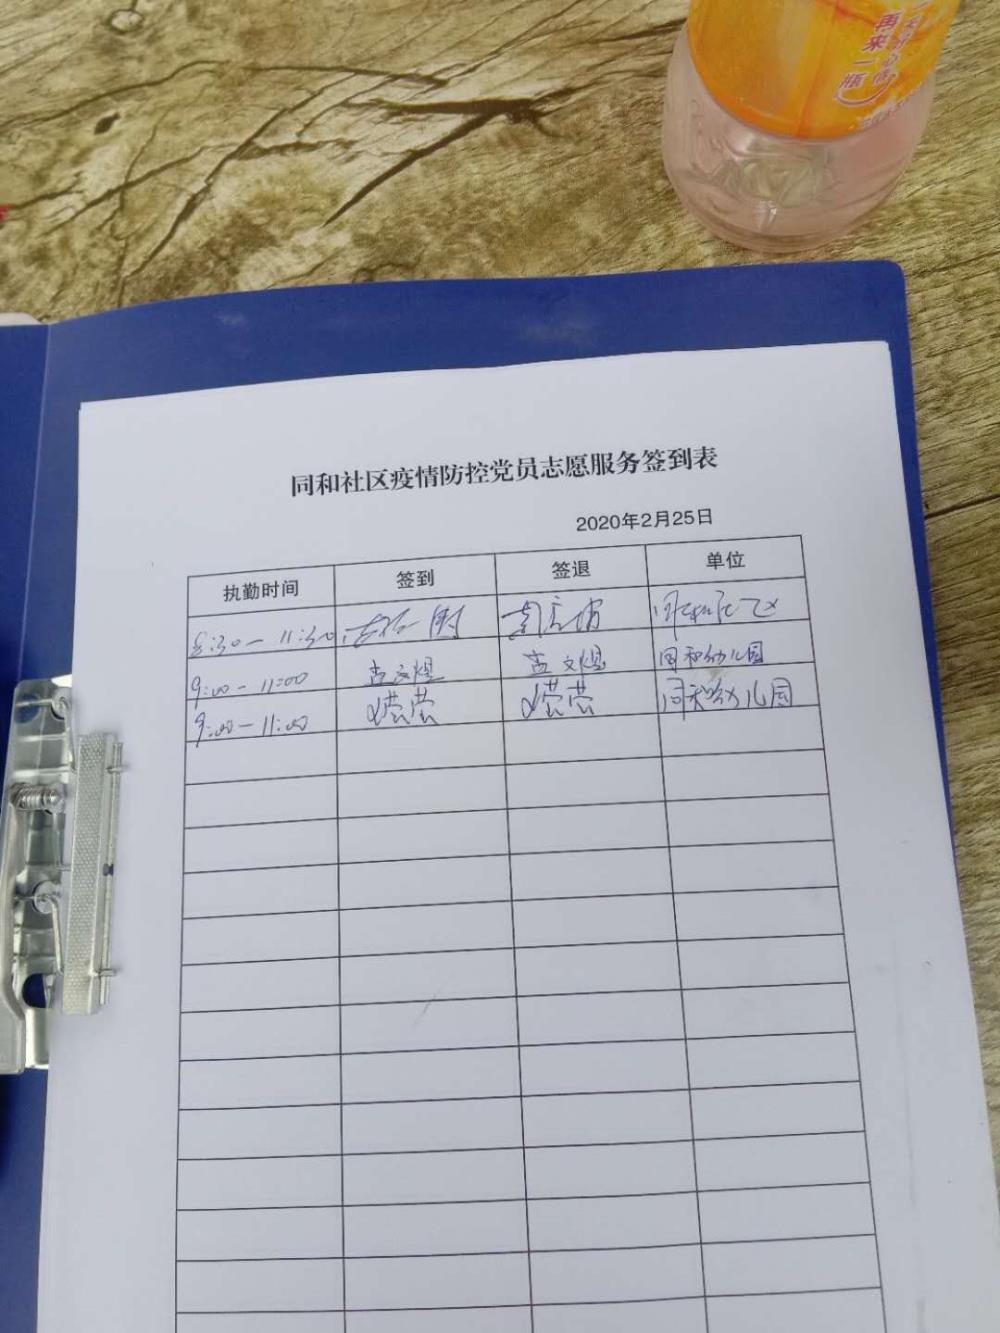 再来一瓶
同和社区疫情防控党员志愿服务签到表
2020年2月25日
执勤时间 签到 签退 单位
8:30-11:30
9:00-11:00 孟文煜 孟文煜 同和幼儿园
9:00-11:00 同和幼儿园